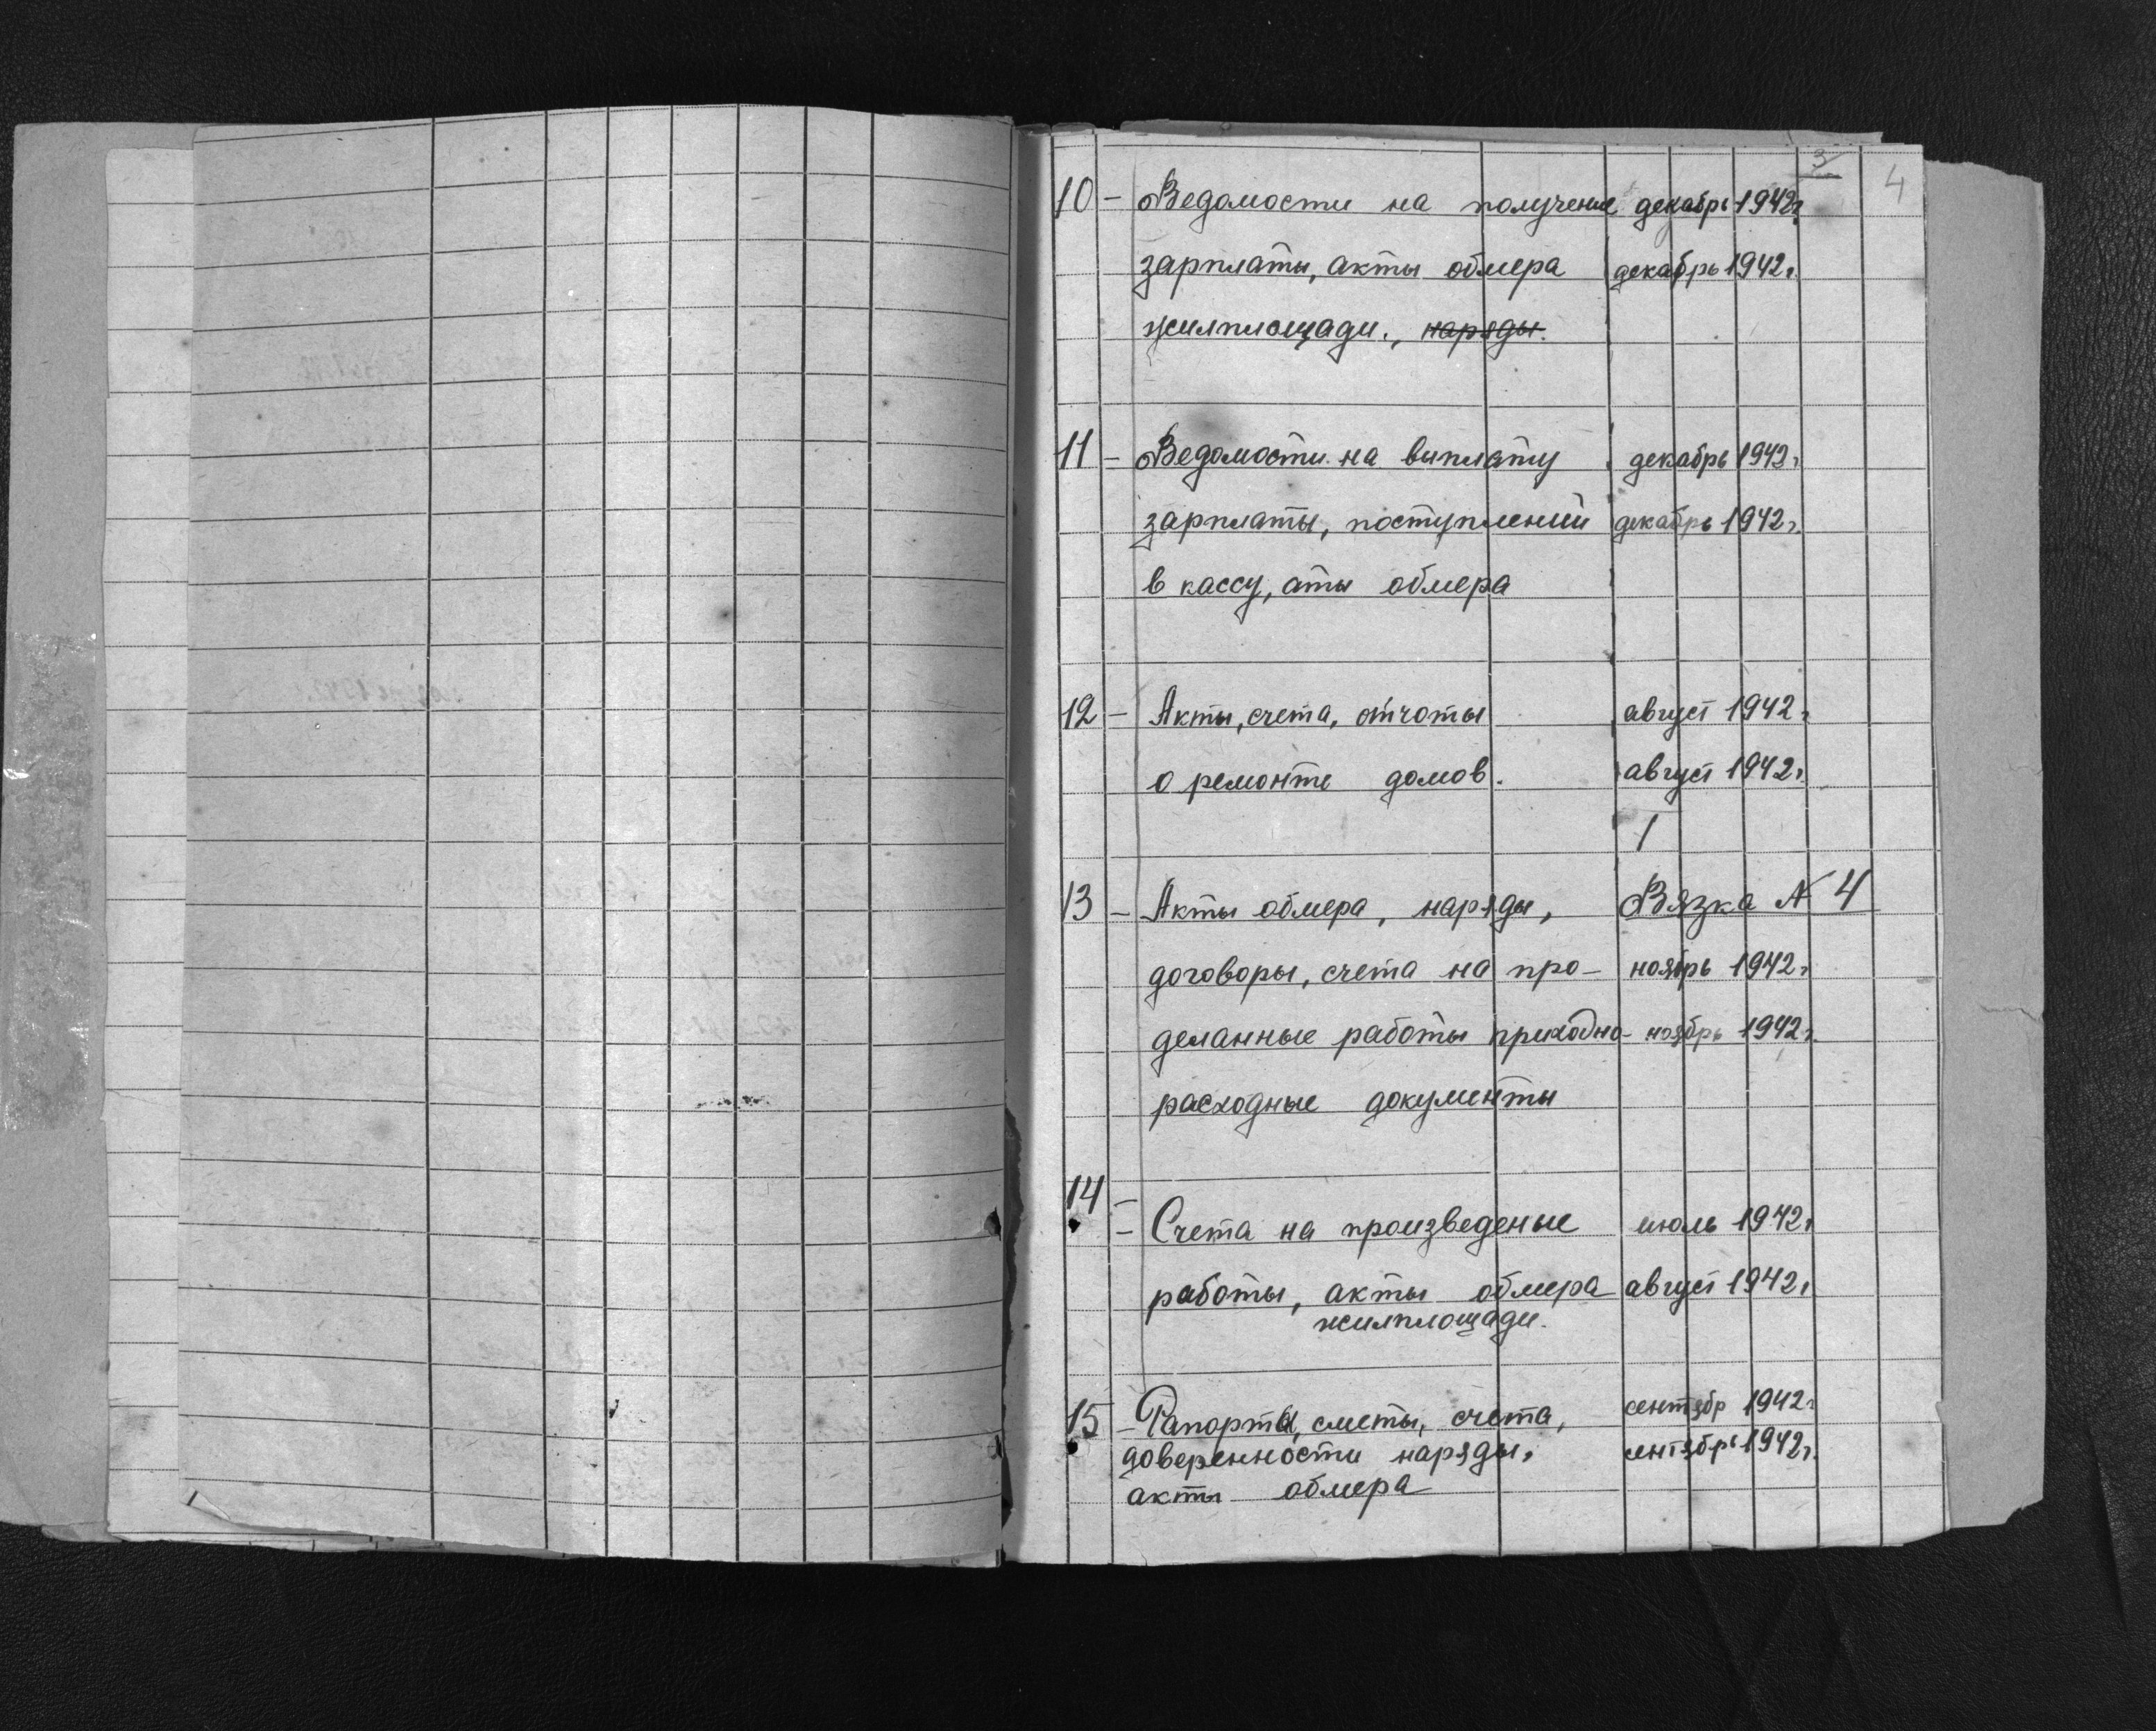 3 4
10 - Ведомости на получение декабрь 1942г
зарплаты, акты обмера декабрь 1942г.
жилплощади., наряды.
11 - Ведомости на виплату декабрь 1942г
зарплаты, поступлений декабрь 1942г.
в кассу, аты обмера
12 - Акты, счета, отчоты август 1942г
о ремонте домов. август 1942г.
13 - Акты обмера, наряды, Вязка № 4
договоры, счета на про- ноябрь 1942г
деланные работы приходно- ноябрь 1942г.
расходные документы
14 -
- Счета на произведеные июль 1942г
работы, акты обмера август 1942г
жилплощади.
15 - Рапорта, сметы, счета, сентябр 1942г
доверенности наряды, сентябрь 1942г.
акты обмера